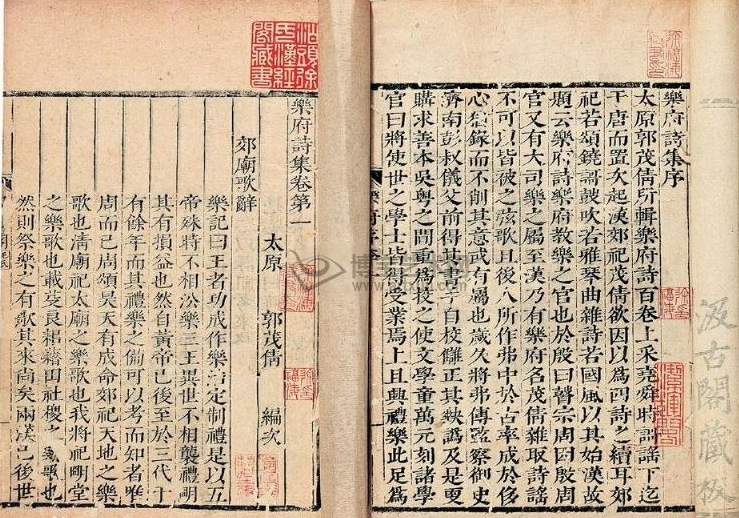 汲古閣藏板
樂府詩集序
太原郭茂倩所輯樂府詩百卷上采堯舜時謌謡下迄
于唐而置次起漢郊祀茂倩欲因以爲四詩之續耳郊
祀若頌鐃謌鼓吹若雅琴曲雜詩若國風以其始漢故
題云樂府詩樂府教樂之官也於殷曰瞽宗周因殷周
官又有大司樂之屬至漢乃有樂府名茂倩雜取詩謡
不可以皆被之弦歌且後人所作弗中於古率成於侈
心猶錄而不削其意或有屬也歲久將弗傳監察御史
濟南彭叔儀父前得其書手自校讎正其缺譌及是更
購求善本吳粤之間重爲校之使文學童萬元刻諸學
官曰將使世之學士皆得受業焉上且興禮樂此足爲
樂府詩集卷第一
太原 郭茂倩 編次
郊廟歌辭
樂記曰王者功成作樂治定制禮是以五
帝殊時不相沿樂三王異世不相襲禮明
其有損益也然自黃帝已後至於三代千
有餘年而其禮樂之備可以考而知者唯
周而已周頌昊天有成命郊祀天地之樂
歌也清廟祀太廟之樂歌也我將祀明堂
之樂歌也載芟良耜藉田社稷之樂歌也
然則祭樂之有歌其來尚矣兩漢已後世